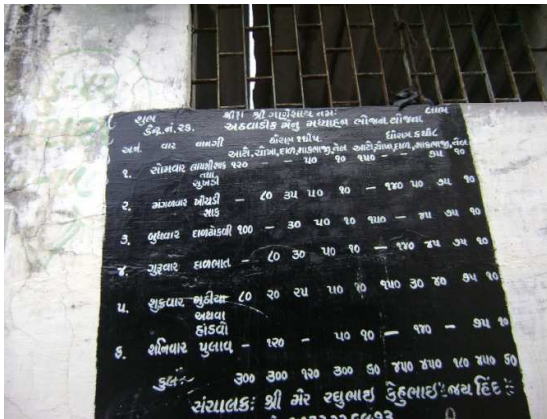 શુભ ॥ શ્રી ગણેશાય નમઃ લાભ
કેન્દ્ર નં.૨૬. અઠવાડીક મેનુ મધ્યાહન ભોજન યોજના
અનં. વાર વાનગી ધોરણ ૧થી૫ ધોરણ ૬થી૮
આટો, ચોખા, દાળ, શાકભાજી, તેલ આટો, ચોખા, દાળ, શાકભાજી, તેલ
૧. સોમવાર લાપસીશાક ૧૨૦ — — ૫૦ ૧૦ ૧૫૦ — — ૭૫ ૧૦
તથા
સુખડી
૨. મંગળવાર ખીચડી — ૮૦ ૩૫ ૫૦ ૧૦ — ૧૪૦ ૫૦ ૭૫ ૧૦
શાક
૩. બુધવાર દાળઢોકળી ૧૦૦ — ૩૦ ૫૦ ૧૦ ૧૫૦ — ૪૫ ૭૫ ૧૦
૪. ગુરૂવાર દાળભાત — ૮૦ ૩૦ ૫૦ ૧૦ — ૧૪૦ ૪૫ ૭૫ ૧૦
૫. શુક્રવાર મુઠીયા ૮૦ ૨૦ ૨૫ ૫૦ ૧૦ ૧૫૦ ૩૦ ૪૦ ૭૫ ૧૦
અથવા
હાંડવો
૬. શનિવાર પુલાવ — ૧૨૦ — ૫૦ ૧૦ — ૧૪૦ — ૭૫ ૧૦
કુલઃ ૩૦૦ ૩૦૦ ૧૨૦ ૩૦૦ ૬૦ ૪૫૦ ૪૫૦ ૧૮૦ ૪૫૦ ૬૦
સંચાલકઃ શ્રી મેર રઘુભાઇ કેહુભાઇ જય હિંદ